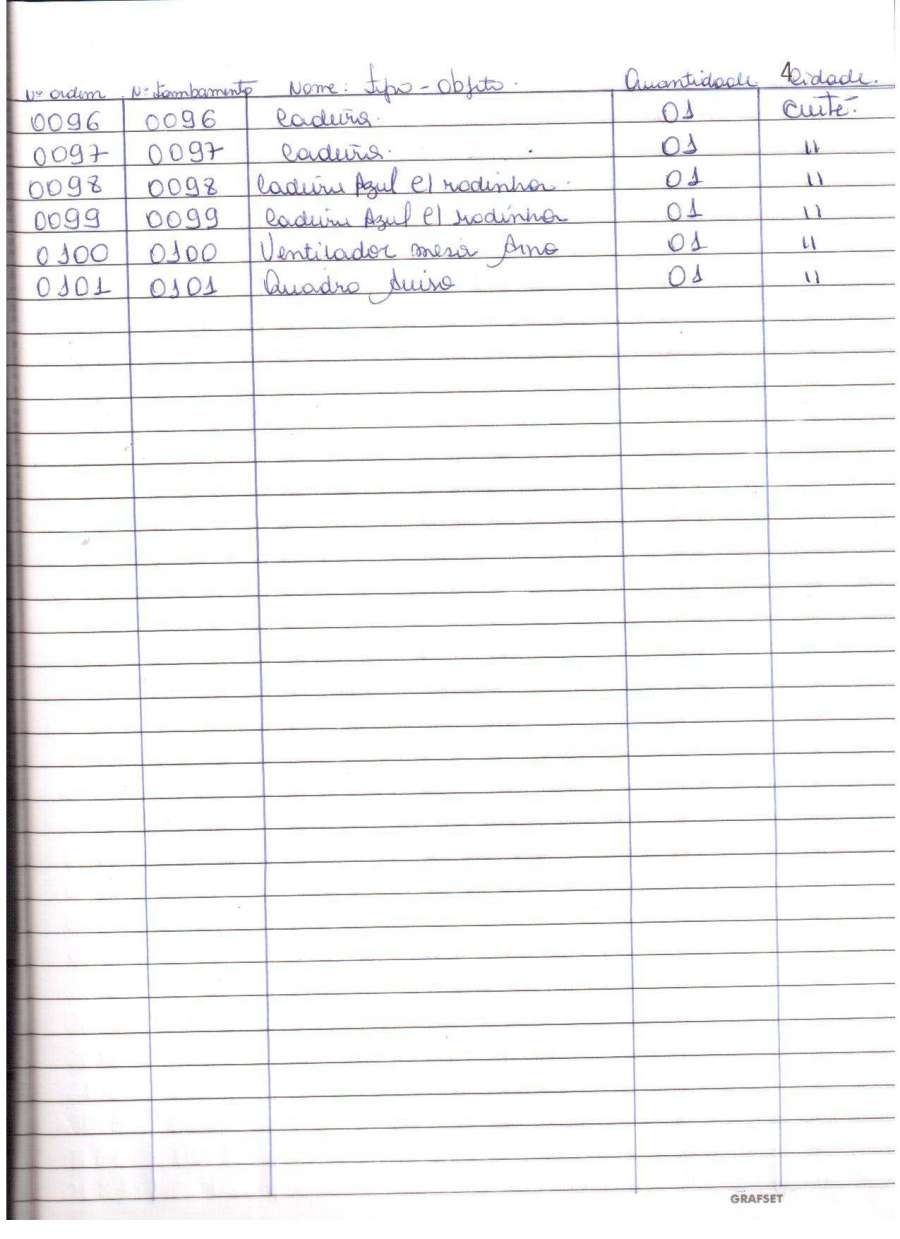 Nº ordem Nº tombamento Nome: tipo - objeto. Quantidade 4 Cidade.
0096 0096 Cadeira. 01 Cuité.
0097 0097 Cadeira. 01 "
0098 0098 Cadeira Azul c/ rodinha. 01 "
0099 0099 Cadeira Azul c/ rodinha 01 "
0100 0100 Ventilador mesa Arno 01 "
0101 0101 Quadro Aviso 01 "
GRAFSET